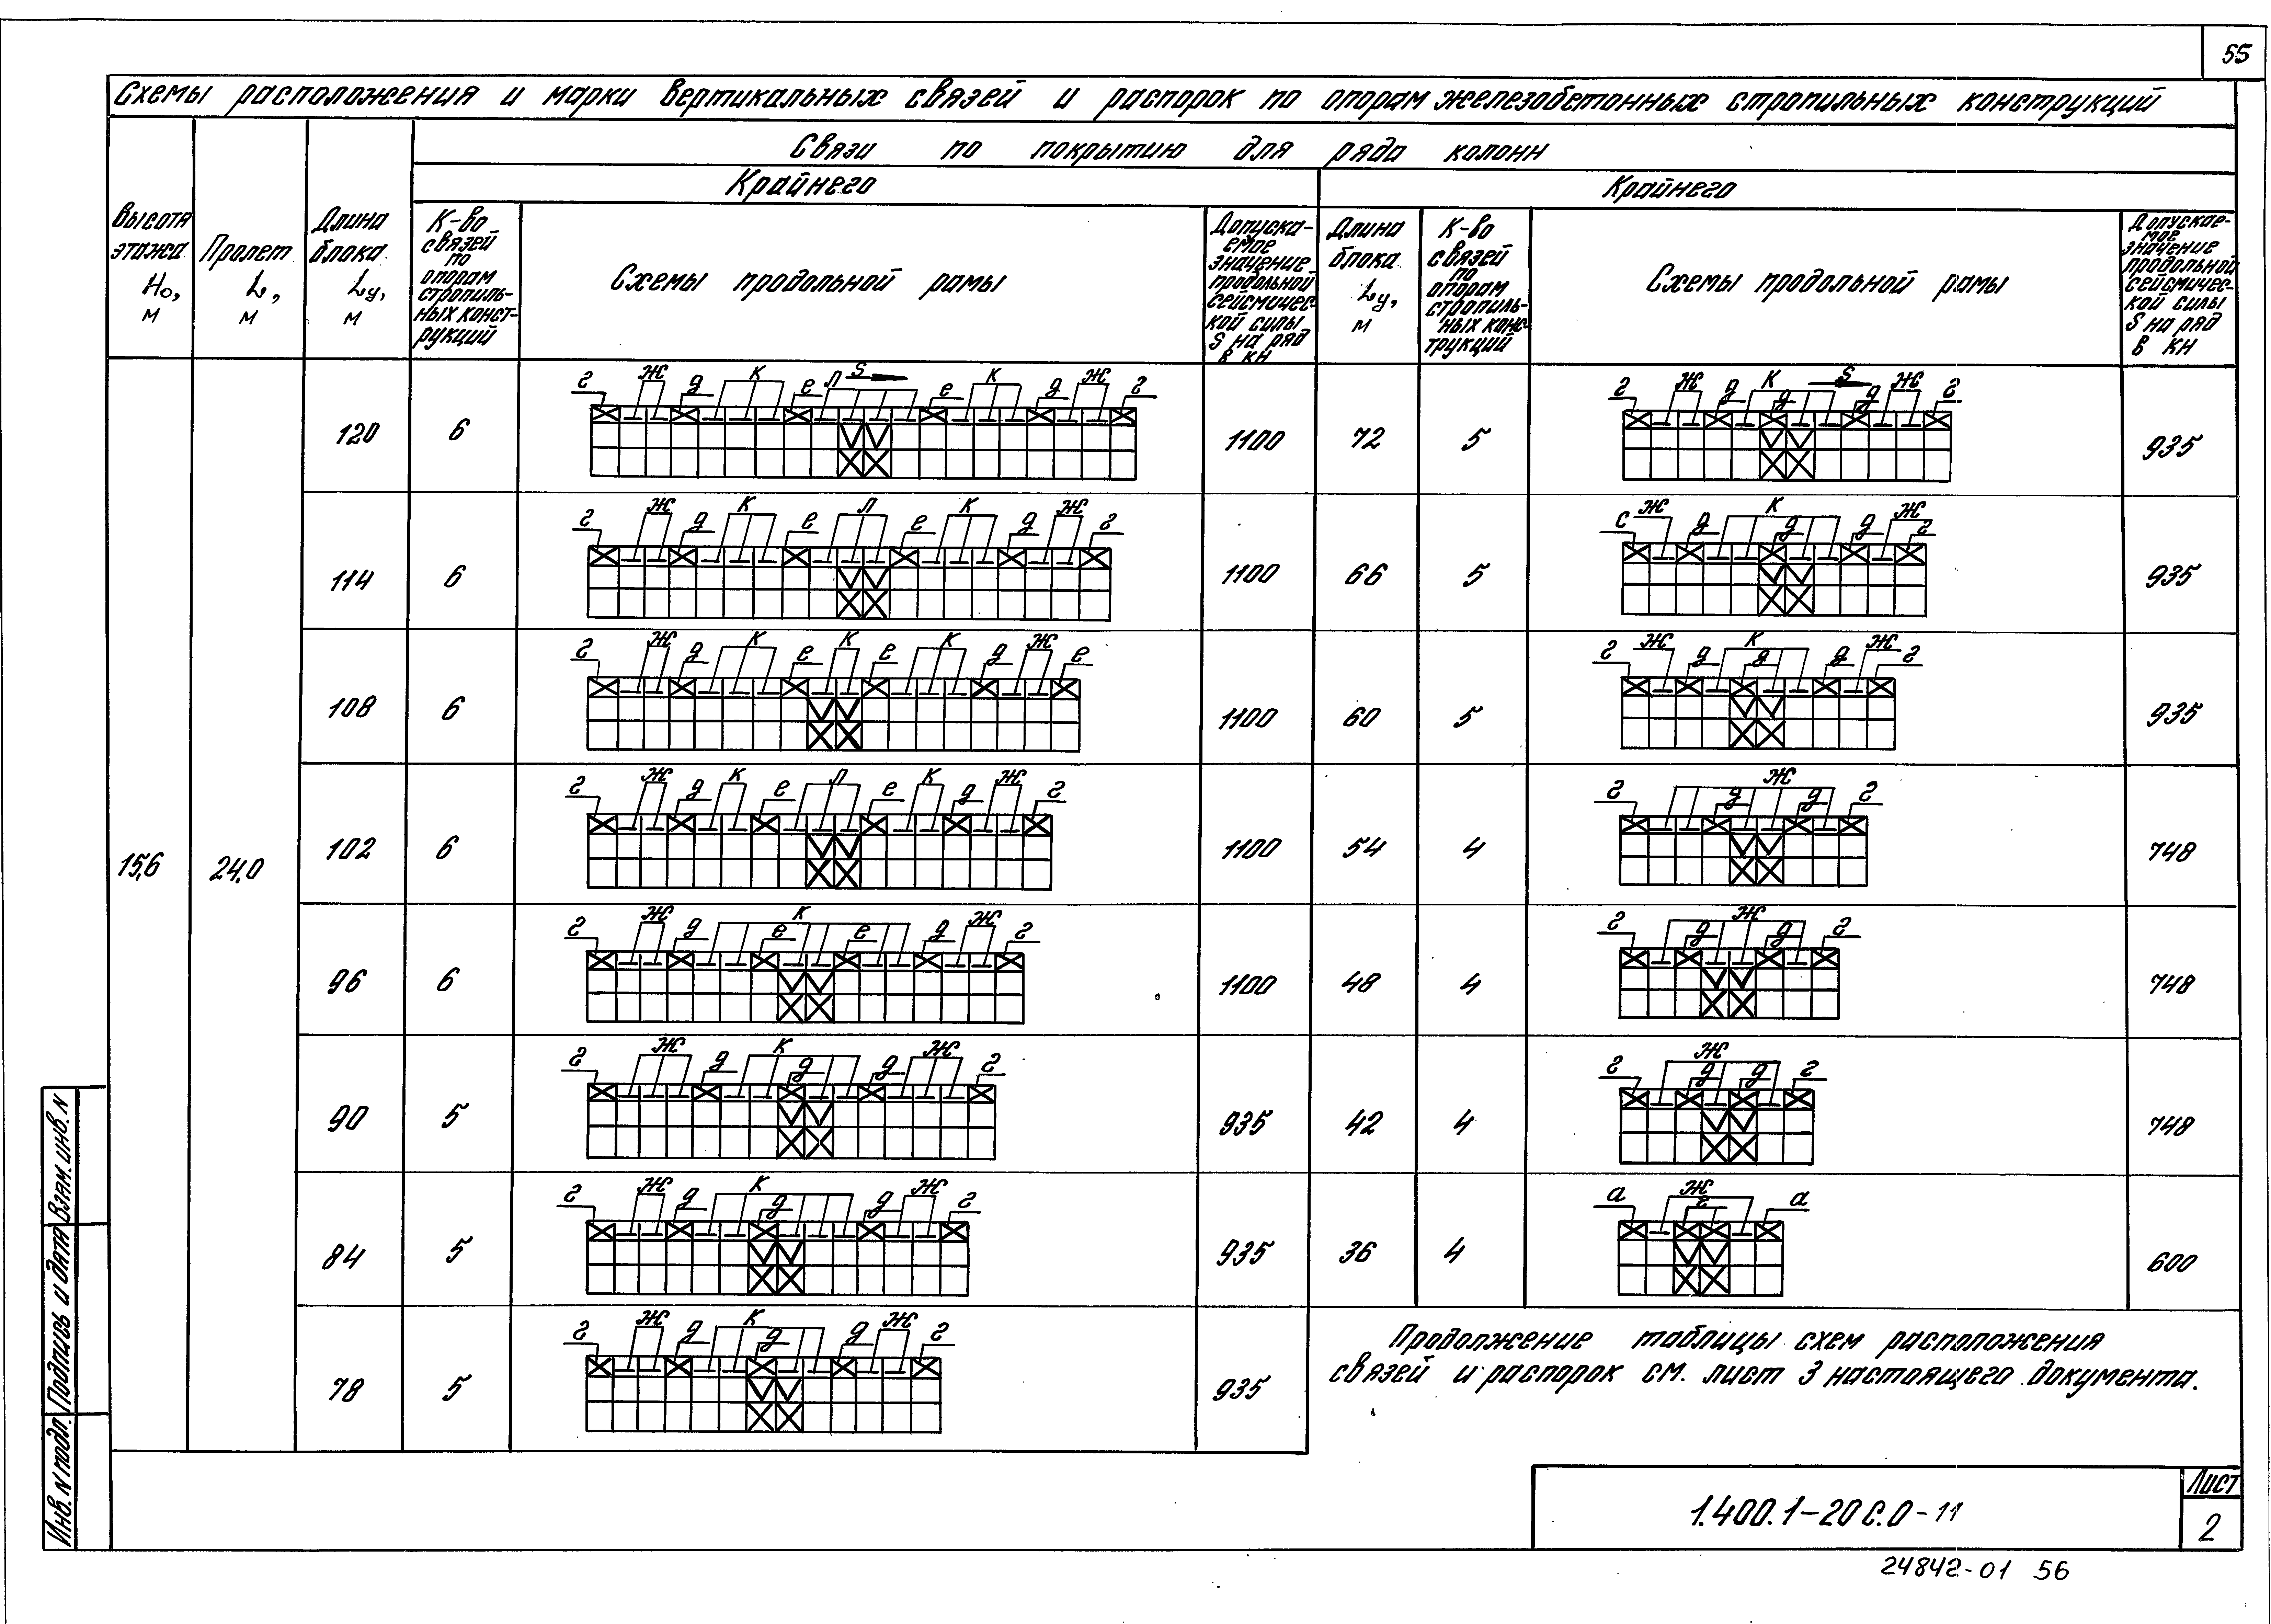 55
Схемы расположения и марки вертикальных связей и распорок по опорам железобетонных стропильных конструкций
Связи по покрытию для ряда колонн
Крайнего Крайнего
Высота этажа Н₀, м
Пролет L, м
Длина блока Lу, м
К-во связей по опорам стропиль-ных конст-рукций
Схемы продольной рамы
Допуска-емое значение продольной сейсмичес-кой силы S на ряд в кн
Длина блока Lу, м
К-во связей по опорам стропиль-ных конс-трукций
Схемы продольной рамы
Допускае-мое значение продольной сейсмичес-кой силы S на ряд в кн
15,6 24,0
г ж д к е л S е к д ж г
120 6 1100
г ж д к д S д ж г
72 5 935
г ж д к е л е к д ж г
114 6 1100
с ж д к д д ж г
66 5 935
г ж д к е к е к д ж е
108 6 1100
г ж д к д д ж г
60 5 935
г ж д к е л е к д ж г
102 6 1100
г ж д д г
54 4 748
г ж д к е е д ж г
96 6 1100
г ж д д г
48 4 748
г ж д к д д ж г
90 5 935
г ж д д г
42 4 748
г ж д к д д ж г
84 5 935
а ж г а
36 4 600
г ж д к д д ж г
78 5 935
Продолжение таблицы схем расположения
связей и распорок см. лист 3 настоящего документа.
Инв. N подл. Подпись и дата Взам. инв. N
1.400.1-20с.0-11
Лист
2
24842-01 56